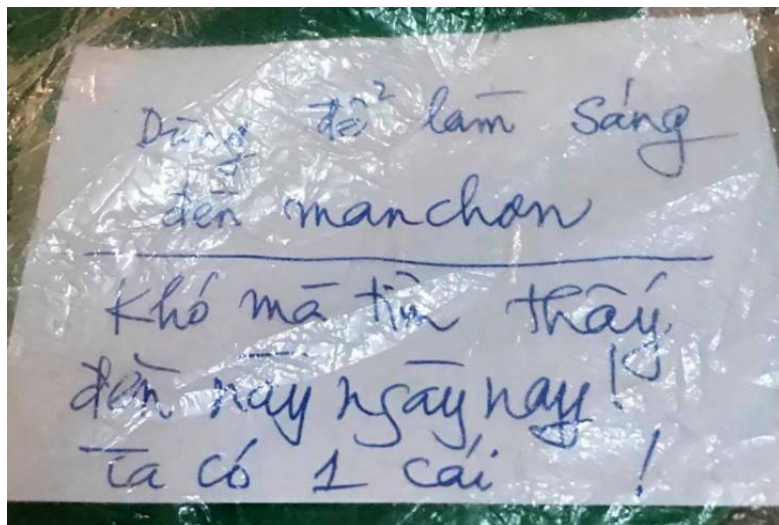 Dùng để làm sáng
đèn manchon
Khó mà tìm thấy
đèn này ngày nay!
Ta có 1 cái !